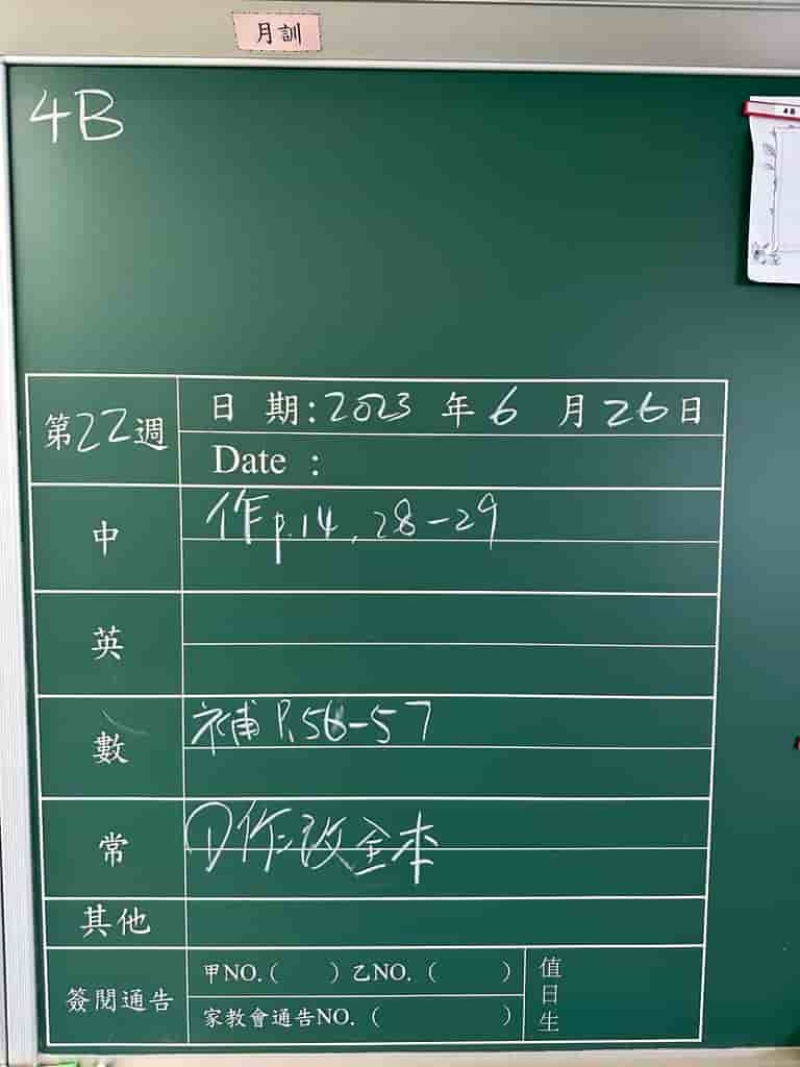 月訓
4B
4B
第22週
日 期:2023 年 6 月 26 日
Date :
中
作p.14, 28-29
英
數
補 P.56-57
常
①作:改全本
其他
簽閱通告
甲NO.( ) 乙NO. ( )
家教會通告NO. ( )
值日生